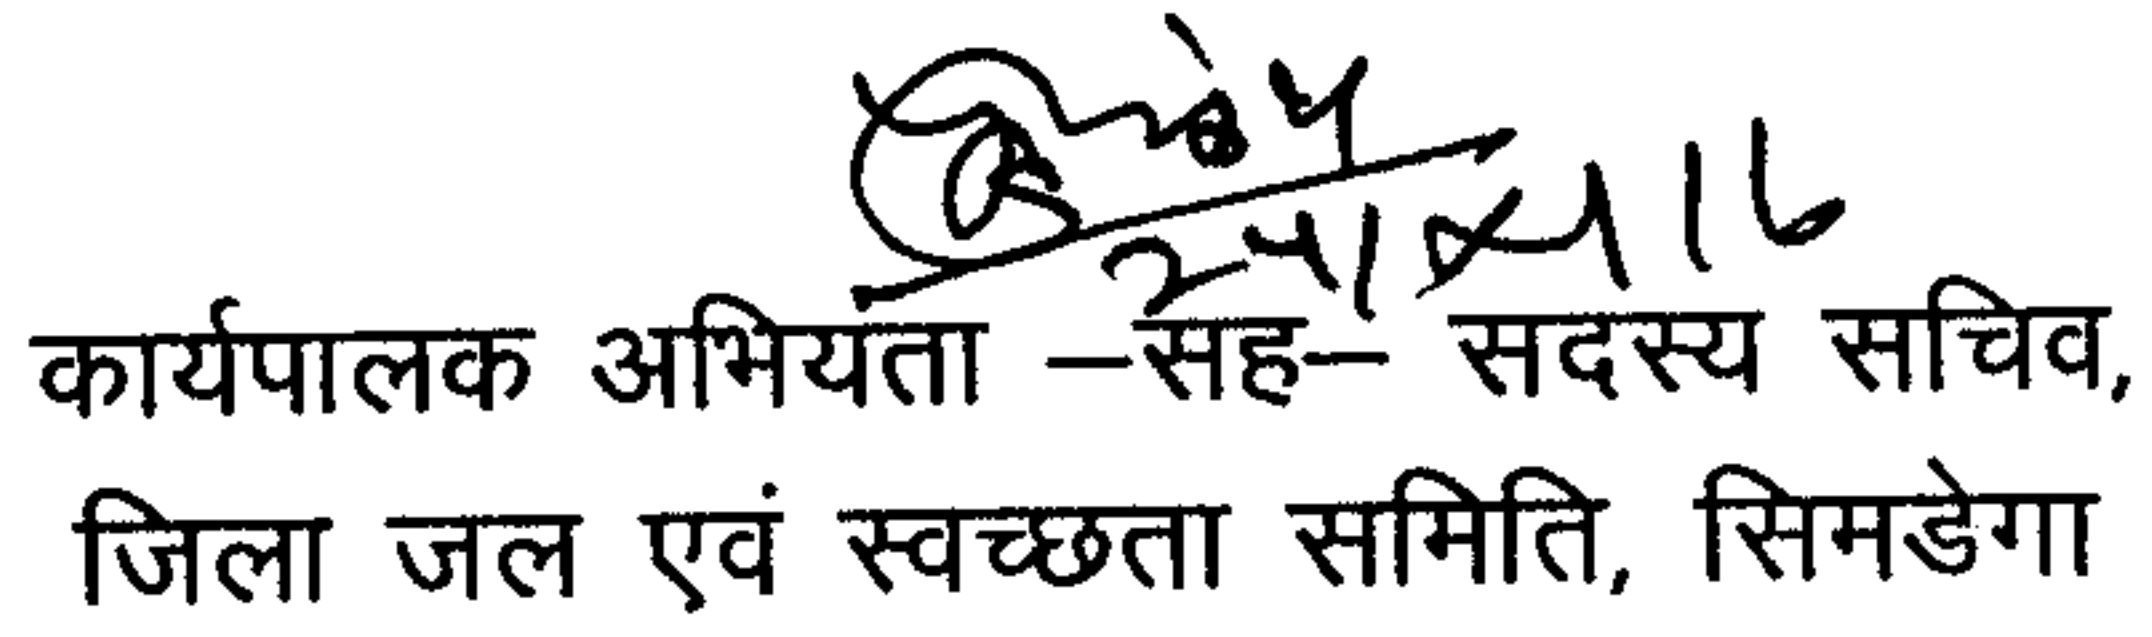 कार्यपालक अभियंता –सह– सदस्य सचिव,
जिला जल एवं स्वच्छता समिति, सिमडेगा